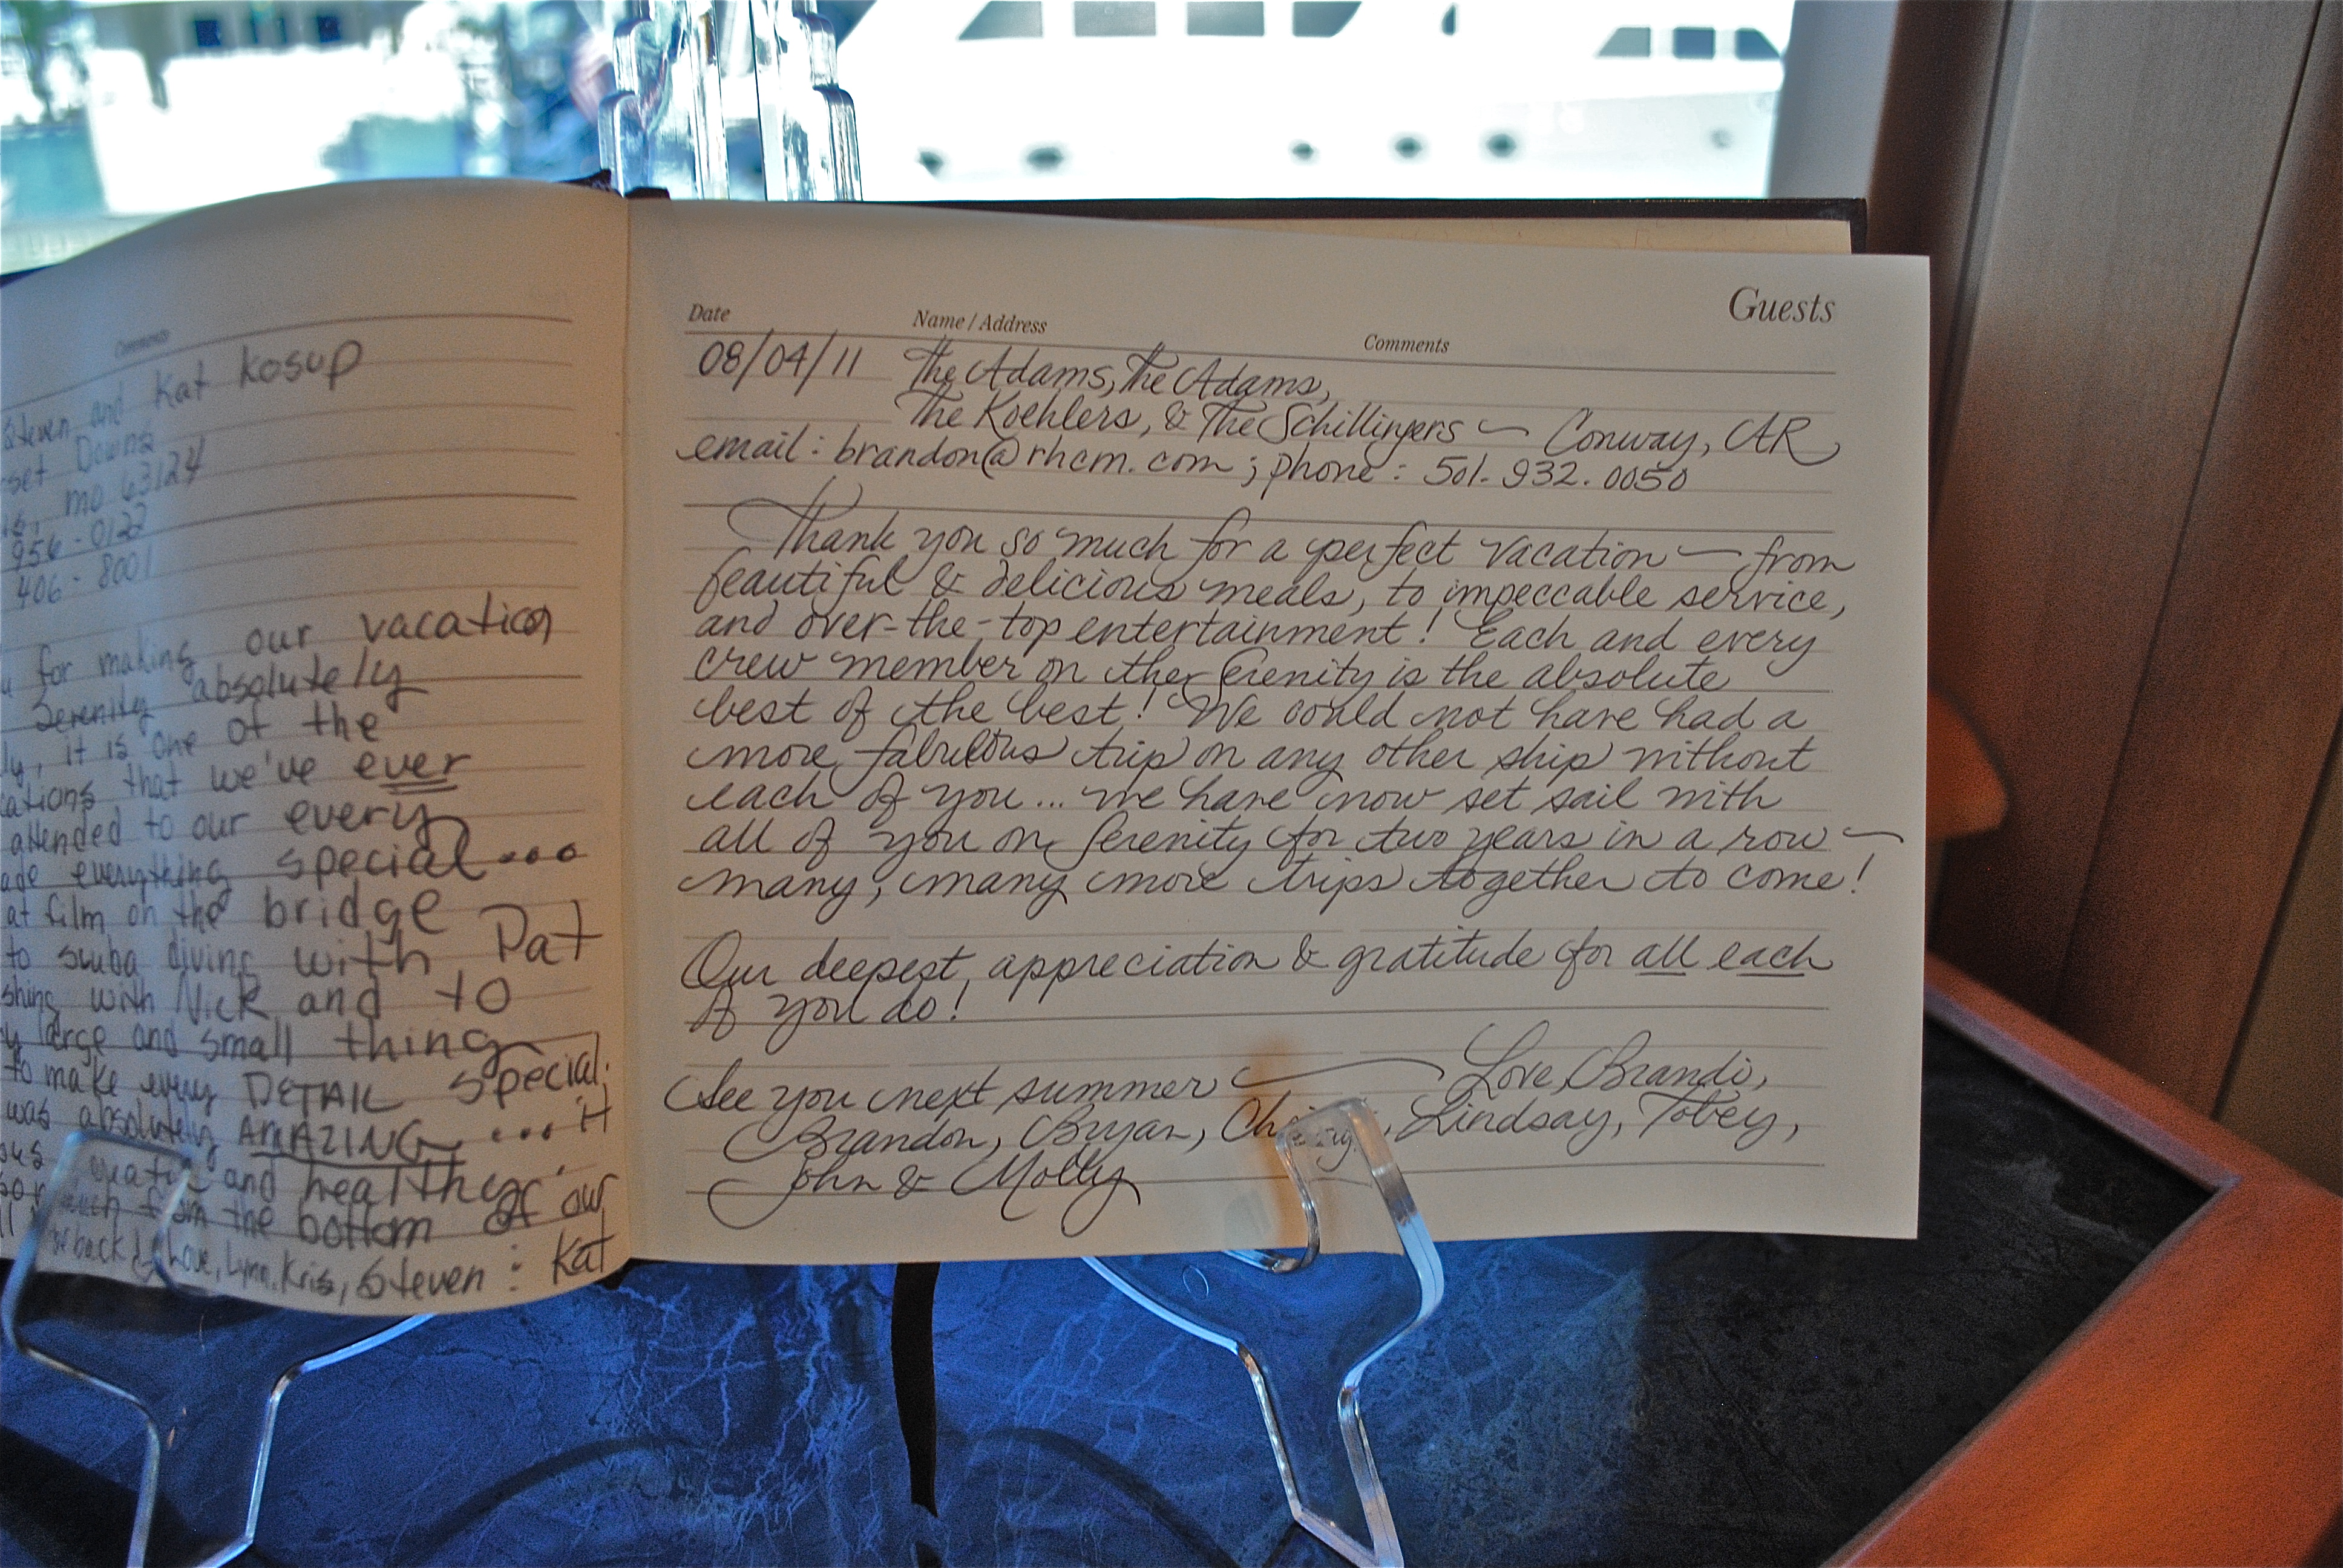 Comments
Steven and Kat Kosup
set Downs
mo 63124
956-0122
406-8001
for making our vacation
Serenity absolutely
ly, it is one of the
cations that we've ever
attended to our every
ade everything special...
at film on the bridge
to scuba diving with Pat
shing with Nick and to
y large and small thing
to make every DETAIL special.
was absolutely AMAZING... it
and healthy.
from the bottom of our
back & Love, Lynn, Kris, Steven : Kat
Guests
Date Name / Address Comments
08/04/11 The Adams, The Adams,
The Koehlers, & The Schillingers ~ Conway, AR
email: brandon@rhcm.com; phone: 501.932.0050
Thank you so much for a perfect vacation — from
beautiful & delicious meals, to impeccable service,
and over-the-top entertainment! Each and every
crew member on the Serenity is the absolute
best of the best! We could not have had a
more fabulous trip on any other ship without
each of you... we have now set sail with
all of you on Serenity for two years in a row —
many, many more trips together to come!
Our deepest appreciation & gratitude for all each
of you do!
See you next summer — Love, Brandi,
Brandon, Bryan, Lindsay, Tobey,
John & Molly